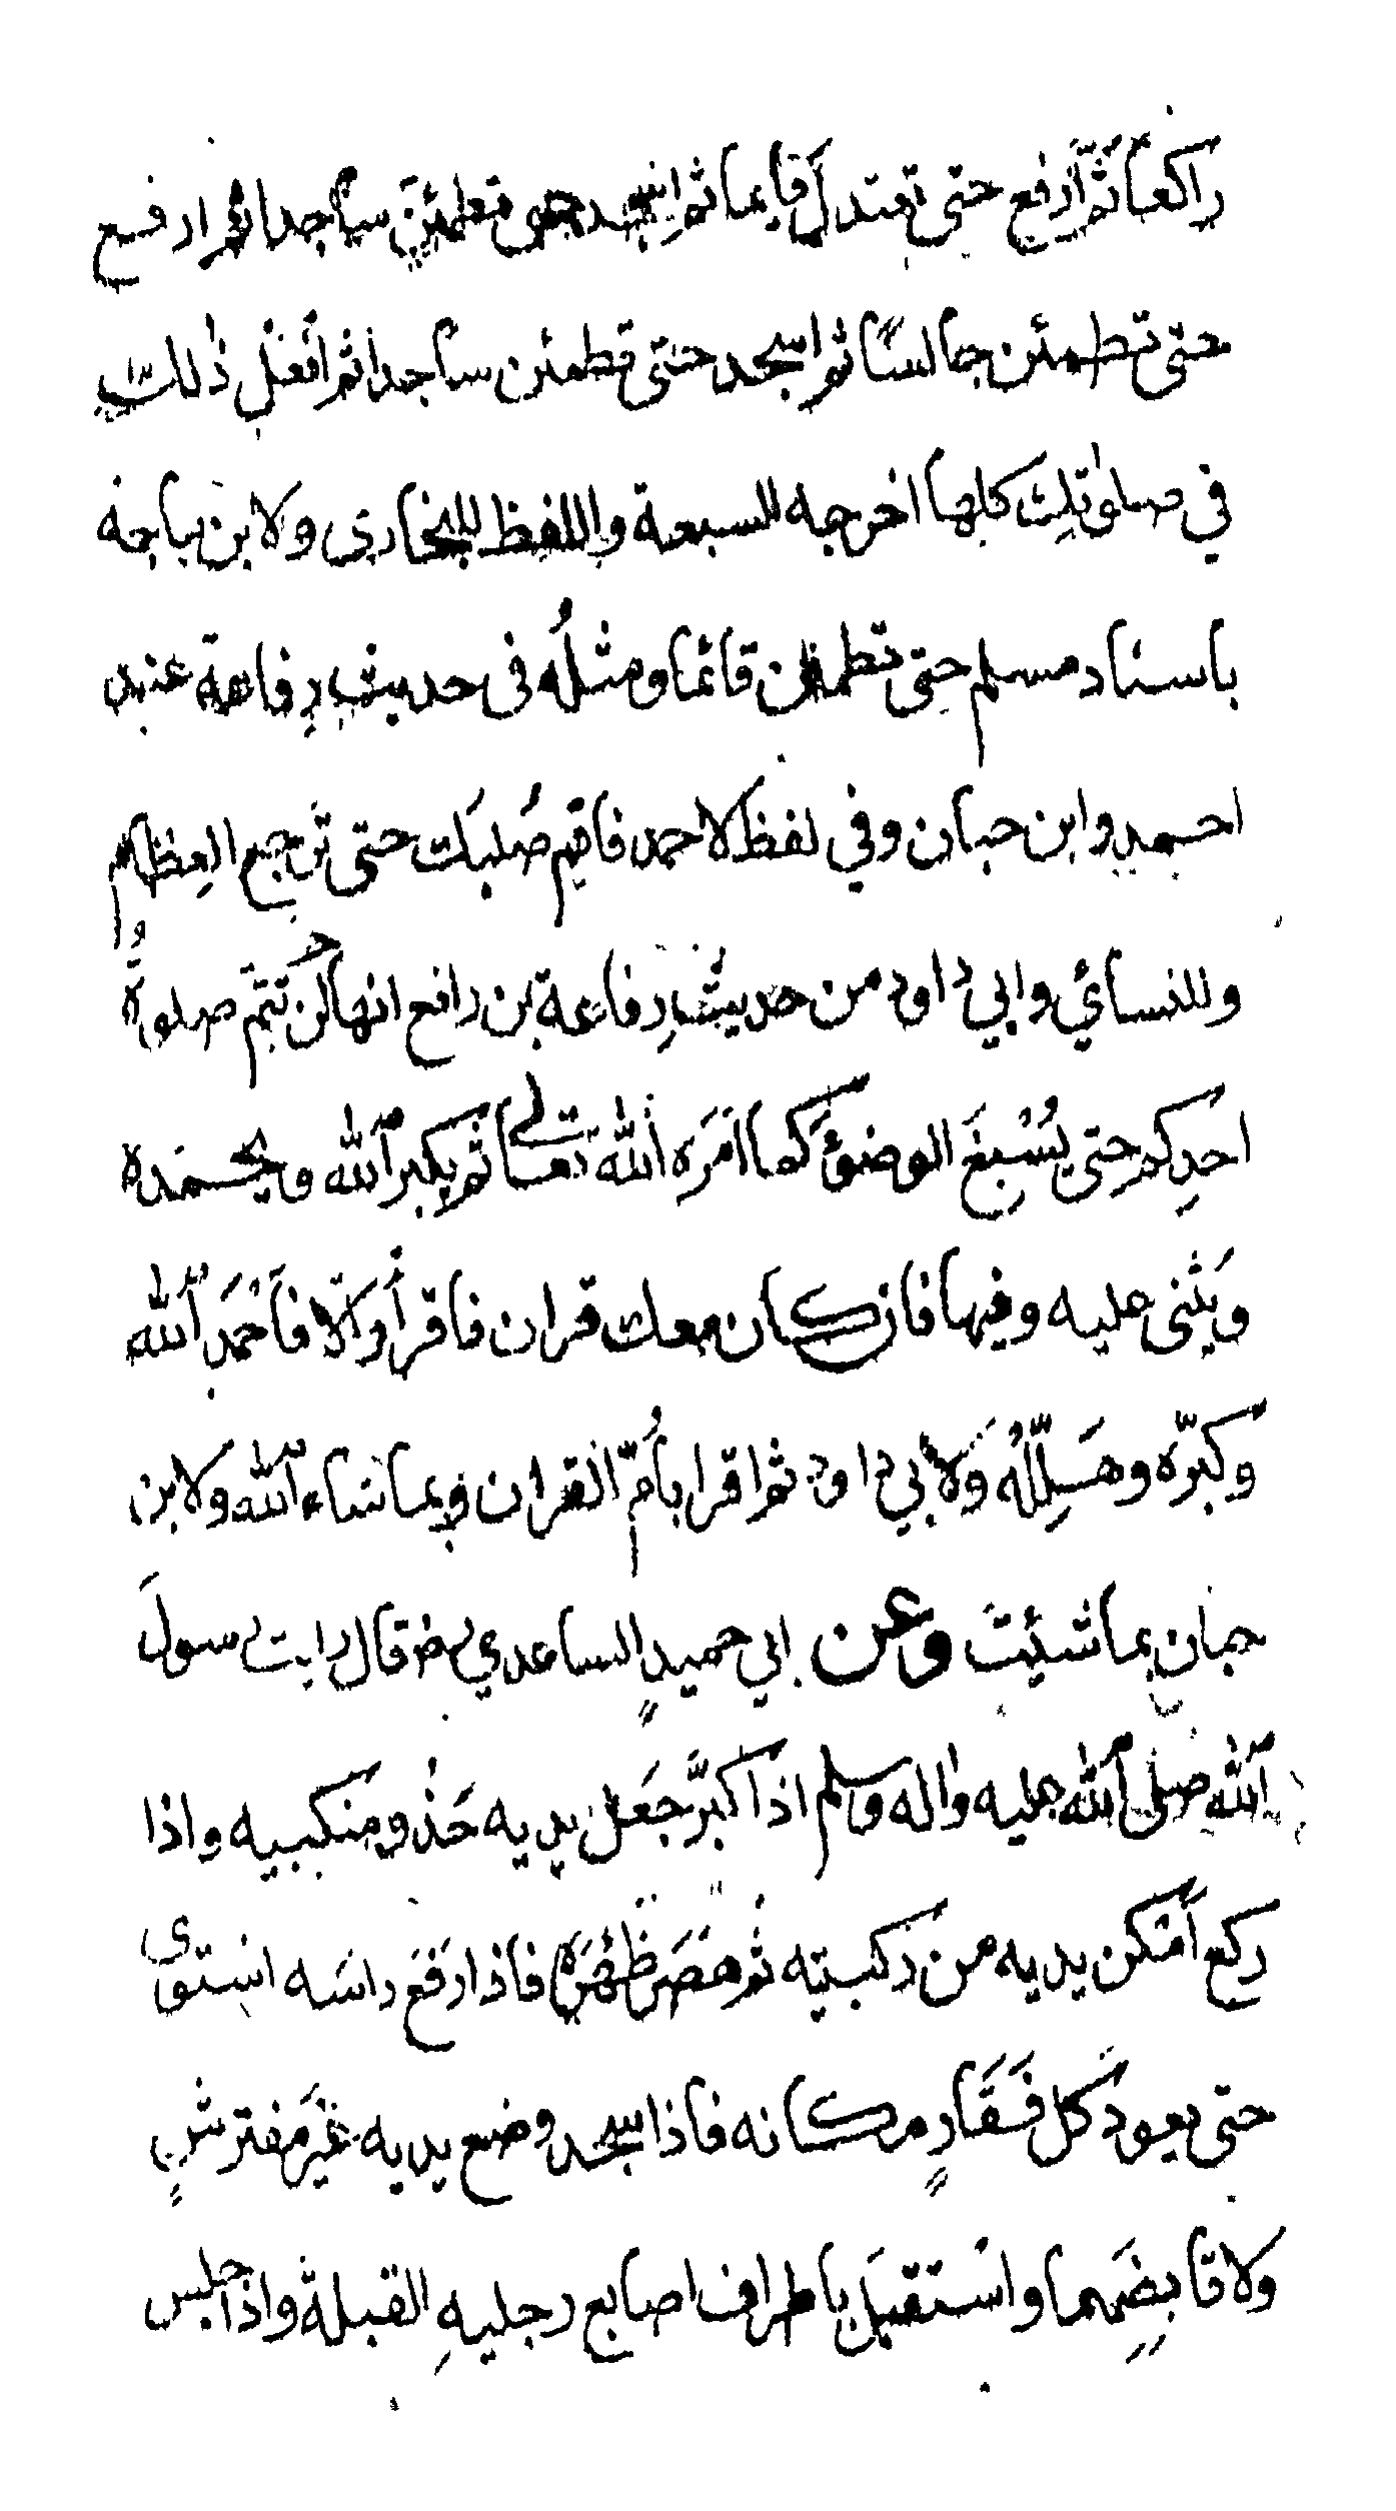 راكعا ثُمَّ ارفع حتى تعتدل قايما ثم اسجد حتى تطمئنَ ساجدا ثم ارفع
حتى تطمئن جالسًا ثم اسجد حتى تطمئن ساجدا ثم افعل ذٰلك
في صلوٰتك كلها اخرجه السبعة واللفظ للبخارى ولابن ماجة
باسناد مسلم حتى تطمئن قائما ومثلُه فى حديث رِفاعة عند
احمد وابن حبان وفي لفظ لاحمد فاقم صُلبَك حتى تَرجع العِظام
وللنسائي وابي داود من حديثِ رِفاعة بن رافع انها لن تَتِمَّ صلوةُ
احدِكم حتى يُسْبغَ الوضوءَ كما امَرَه اللّٰه تعالى ثم يكبر اللّٰه ويحمَده
وَيثنى عليه وفيها فان كان معك قران فاقرأ وَالّا فَاحْمَدِ اللّٰه
وكبّره وهَلِّلْهُ وَلابي داود ثم اقرا باُمّ القران وبما شاء اللّٰه ولابن
حبانِ بما شئتَ وعن ابي حميدٍ الساعدي رض قال رايت رسولَ
اللّٰه صلى اللّٰه عليه واٰله وسلم اذا كبَّر جَعَل يديه حَذْو منكبيه واذا
ركع اَمْكن يديه من ركبتيه ثُم هَصَر ظَهْرَه فاذا رَفَعَ راسَه استوى
حتى يعودَ كل فَقَارٍ مكانه فاذا سجد وضع يديه غَيَر مفترشٍ
ولا قابِضِهما واسْتقبَل باطراف اصابع رجليهِ القبلةَ واذا جلس